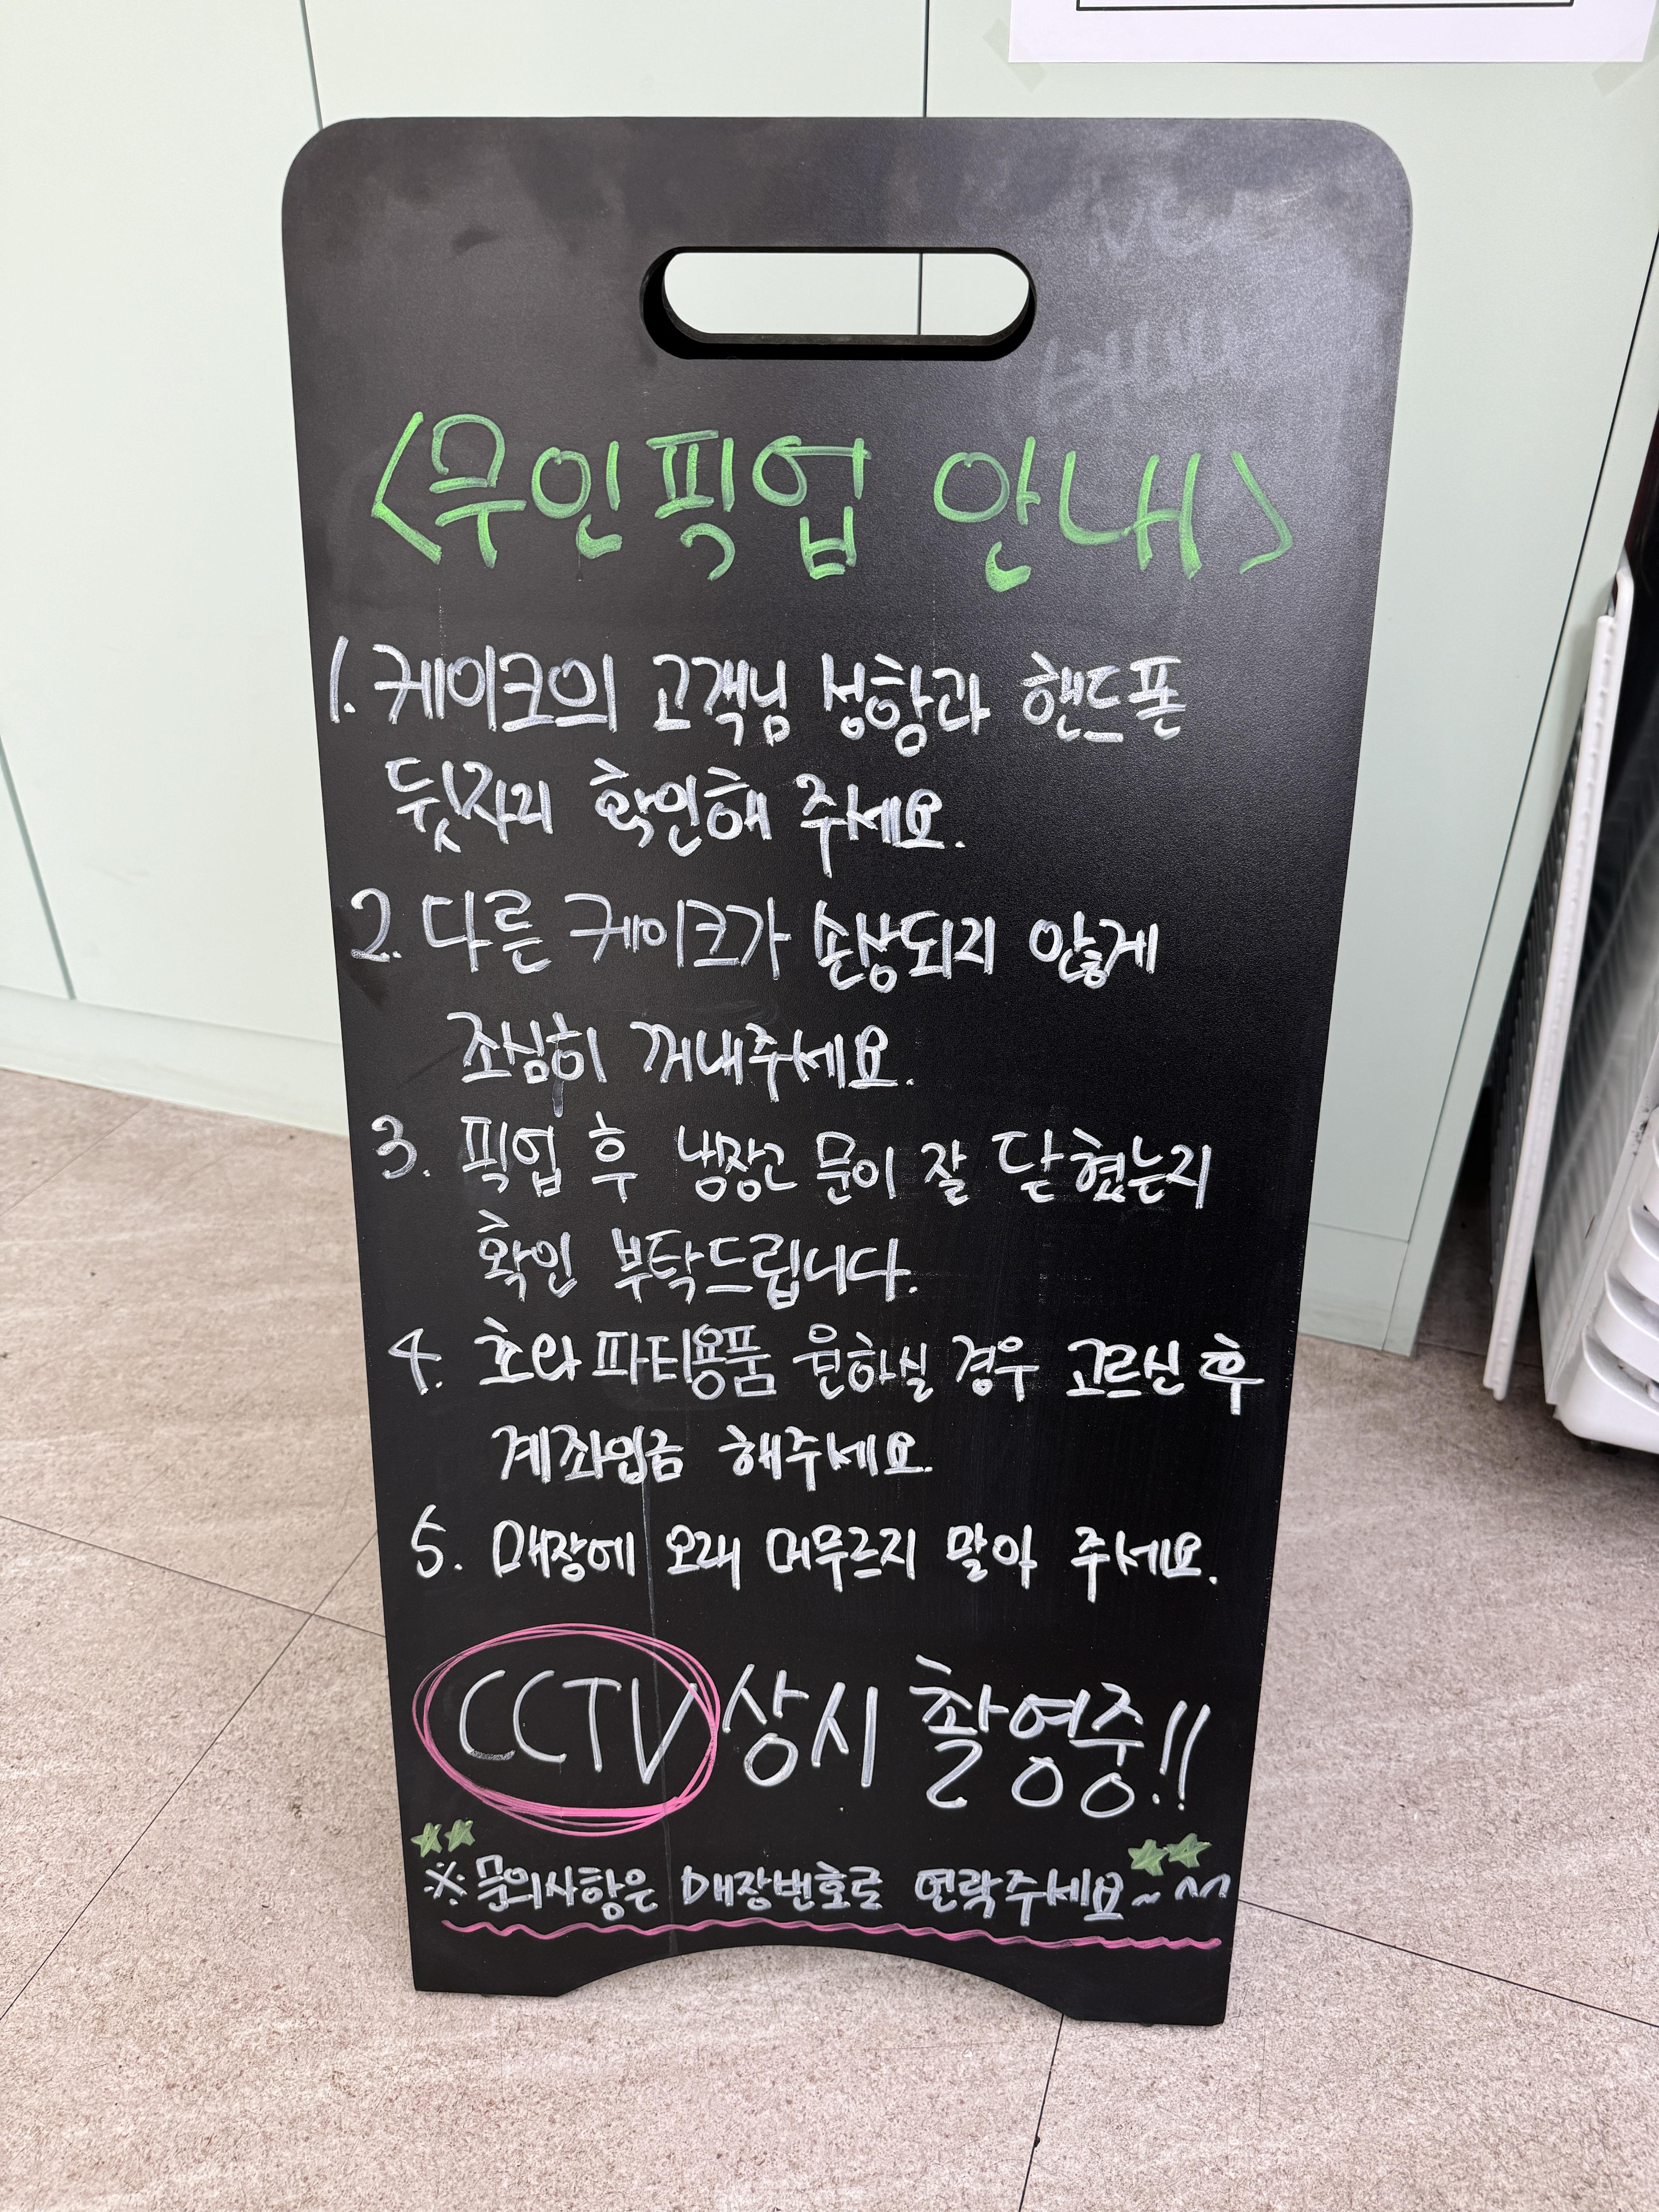 <무인픽업 안내>
1. 케이크의 고객님 성함과 핸드폰
뒷자리 확인해 주세요.
2. 다른 케이크가 손상되지 않게
조심히 꺼내주세요.
3. 픽업 후 냉장고 문이 잘 닫혔는지
확인 부탁드립니다.
4. 초와 파티용품 원하실 경우 고르신 후
계좌입금 해주세요.
5. 매장에 오래 머무르지 말아 주세요.
CCTV 상시 촬영중!!
※문의사항은 매장번호로 연락주세요~